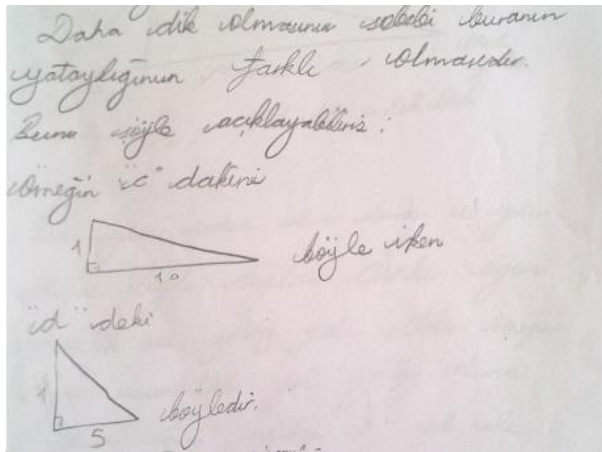 Daha dik olmasının sebebi buranın
yataylığının farklı olmasıdır.
Bunu şöyle açıklayabiliriz:
Örneğin "c" dakini
1
10
böyle iken
"d" deki
1
5
böyledir.